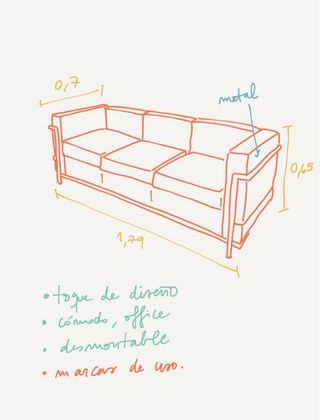 0,7
metal
0,65
1,79
• toque de diseño
• cómodo, office
• desmontable
• marcas de uso.